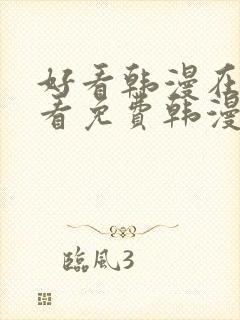 好看韩漫在
看免费韩漫
臨風3